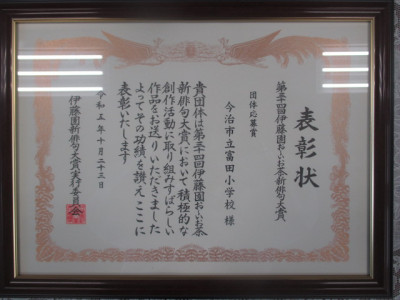 表彰状
第三十四回伊藤園お〜いお茶新俳句大賞
団体応募賞
今治市立富田小学校 様
貴団体は第三十四回伊藤園お〜いお茶
新俳句大賞において積極的な
創作活動に取り組みすばらしい
作品をお送りいただきました
よってその功績を讃え、ここに
表彰いたします
令和五年十月二十三日
伊藤園新俳句大賞実行委員会